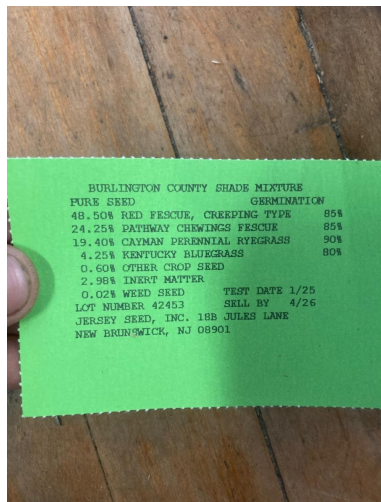 BURLINGTON COUNTY SHADE MIXTURE
PURE SEED GERMINATION
48.50% RED FESCUE, CREEPING TYPE 85%
24.25% PATHWAY CHEWINGS FESCUE 85%
19.40% CAYMAN PERENNIAL RYEGRASS 90%
4.25% KENTUCKY BLUEGRASS 80%
0.60% OTHER CROP SEED
2.98% INERT MATTER
0.02% WEED SEED TEST DATE 1/25
LOT NUMBER 42453 SELL BY 4/26
JERSEY SEED, INC. 18B JULES LANE
NEW BRUNSWICK, NJ 08901